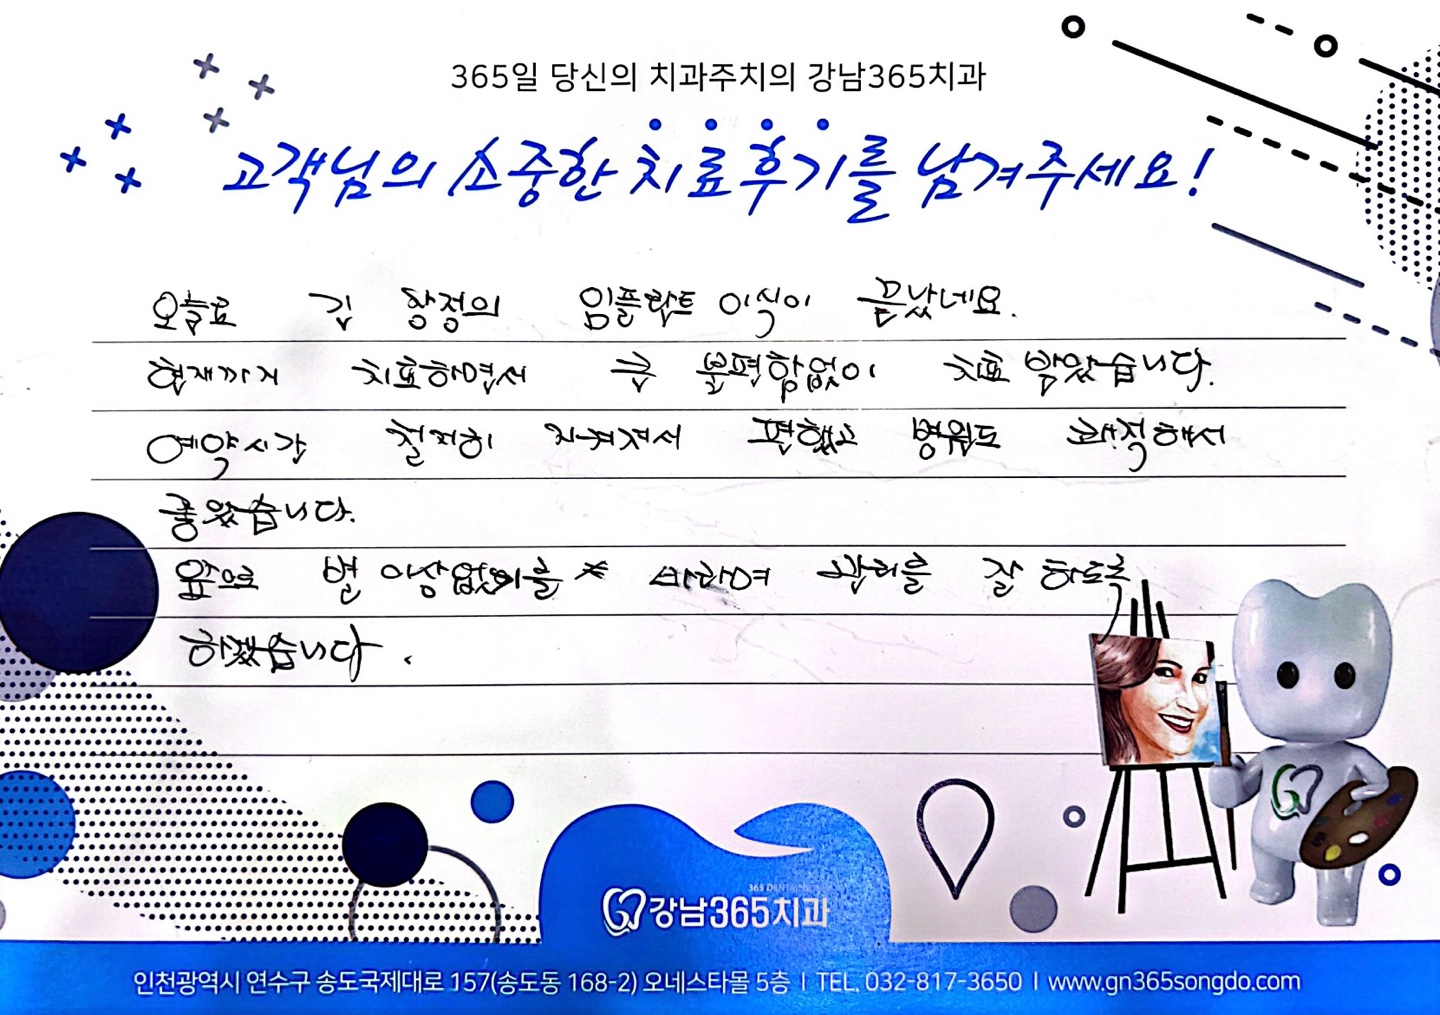 365일 당신의 치과주치의 강남365치과
고객님의 소중한 치료후기를 남겨주세요!
오늘로 긴 항정의 임플란트 이식이 끝났네요.
현재까지 치료하면서 큰 불편함없이 치료 받았습니다.
예약시간 철저히 지켜져서 편했고 병원도 쾌적해서
좋았습니다.
앞으로 별 이상없기를 바라며 관리를 잘 하도록
하겠습니다.
강남365치과
인천광역시 연수구 송도국제대로 157(송도동 168-2) 오네스타몰 5층 | TEL. 032-817-3650 | www.gn365songdo.com